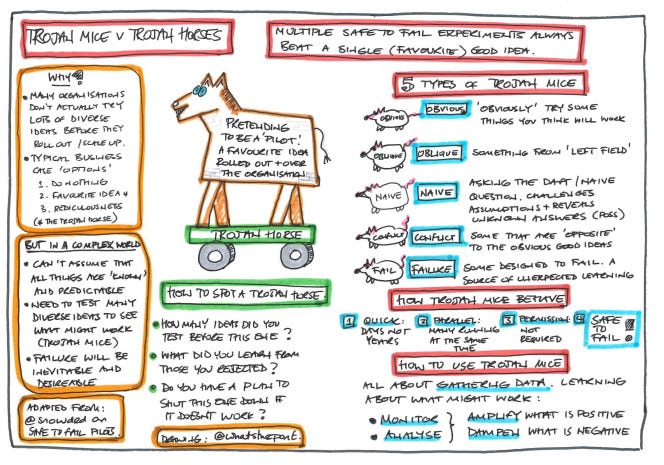 TROJAN MICE V TROJAN HORSES
MULTIPLE SAFE TO FAIL EXPERIMENTS ALWAYS
BEAT A SINGLE (FAVOURITE) GOOD IDEA.
WHY?
• MANY ORGANISATIONS
DON'T ACTUALLY TRY
LOTS OF DIVERSE
IDEAS BEFORE THEY
ROLL OUT / SCALE UP.
• TYPICAL BUSINESS
CASE 'OPTIONS'
1. DO NOTHING
2. FAVOURITE IDEA *
3. RIDICULOUSNESS
(* THE TROJAN HORSE)
BUT IN A COMPLEX WORLD
• CAN'T ASSUME THAT
ALL THINGS ARE 'KNOWN'
AND PREDICTABLE
• NEED TO TEST MANY
DIVERSE IDEAS TO SEE
WHAT MIGHT WORK
(TROJAN MICE)
• FAILURE WILL BE
INEVITABLE AND
DESIREABLE
ADAPTED FROM:
@snowded on
SAFE TO FAIL PILOTS.
PRETENDING
TO BE A 'PILOT'.
A FAVOURITE IDEA
ROLLED OUT + OVER
THE ORGANISATION
TROJAN HORSE
HOW TO SPOT A TROJAN HORSE.
• HOW MANY IDEAS DID YOU
TEST BEFORE THIS ONE?
• WHAT DID YOU LEARN FROM
THOSE YOU REJECTED?
• DO YOU HAVE A PLAN TO
SHUT THIS ONE DOWN IF
IT DOESN'T WORK?
DRAWING: @whatsthepont.
5 TYPES OF TROJAN MICE
OBVIOUS OBVIOUS 'OBVIOUSLY' TRY SOME
THINGS YOU THINK WILL WORK
OBLIQUE OBLIQUE SOMETHING FROM 'LEFT FIELD'
NAIVE NAIVE ASKING THE DAFT / NAIVE
QUESTION, CHALLENGES
ASSUMPTIONS + REVEALS
UNKNOWN ANSWERS (POSS)
CONFLICT CONFLICT SOME THAT ARE 'OPPOSITE'
TO THE OBVIOUS GOOD IDEAS
FAIL FAILURE SOME DESIGNED TO FAIL. A
SOURCE OF UNEXPECTED LEARNING
HOW TROJAN MICE BEHAVE
1 QUICK:
DAYS NOT
YEARS
2 PARALLEL:
MANY RUNNING
AT THE SAME
TIME
3 PERMISSION:
NOT
REQUIRED
4 SAFE
TO
FAIL !
HOW TO USE TROJAN MICE
ALL ABOUT GATHERING DATA. LEARNING
ABOUT WHAT MIGHT WORK:
• MONITOR } AMPLIFY WHAT IS POSITIVE
• ANALYSE } DAMPEN WHAT IS NEGATIVE